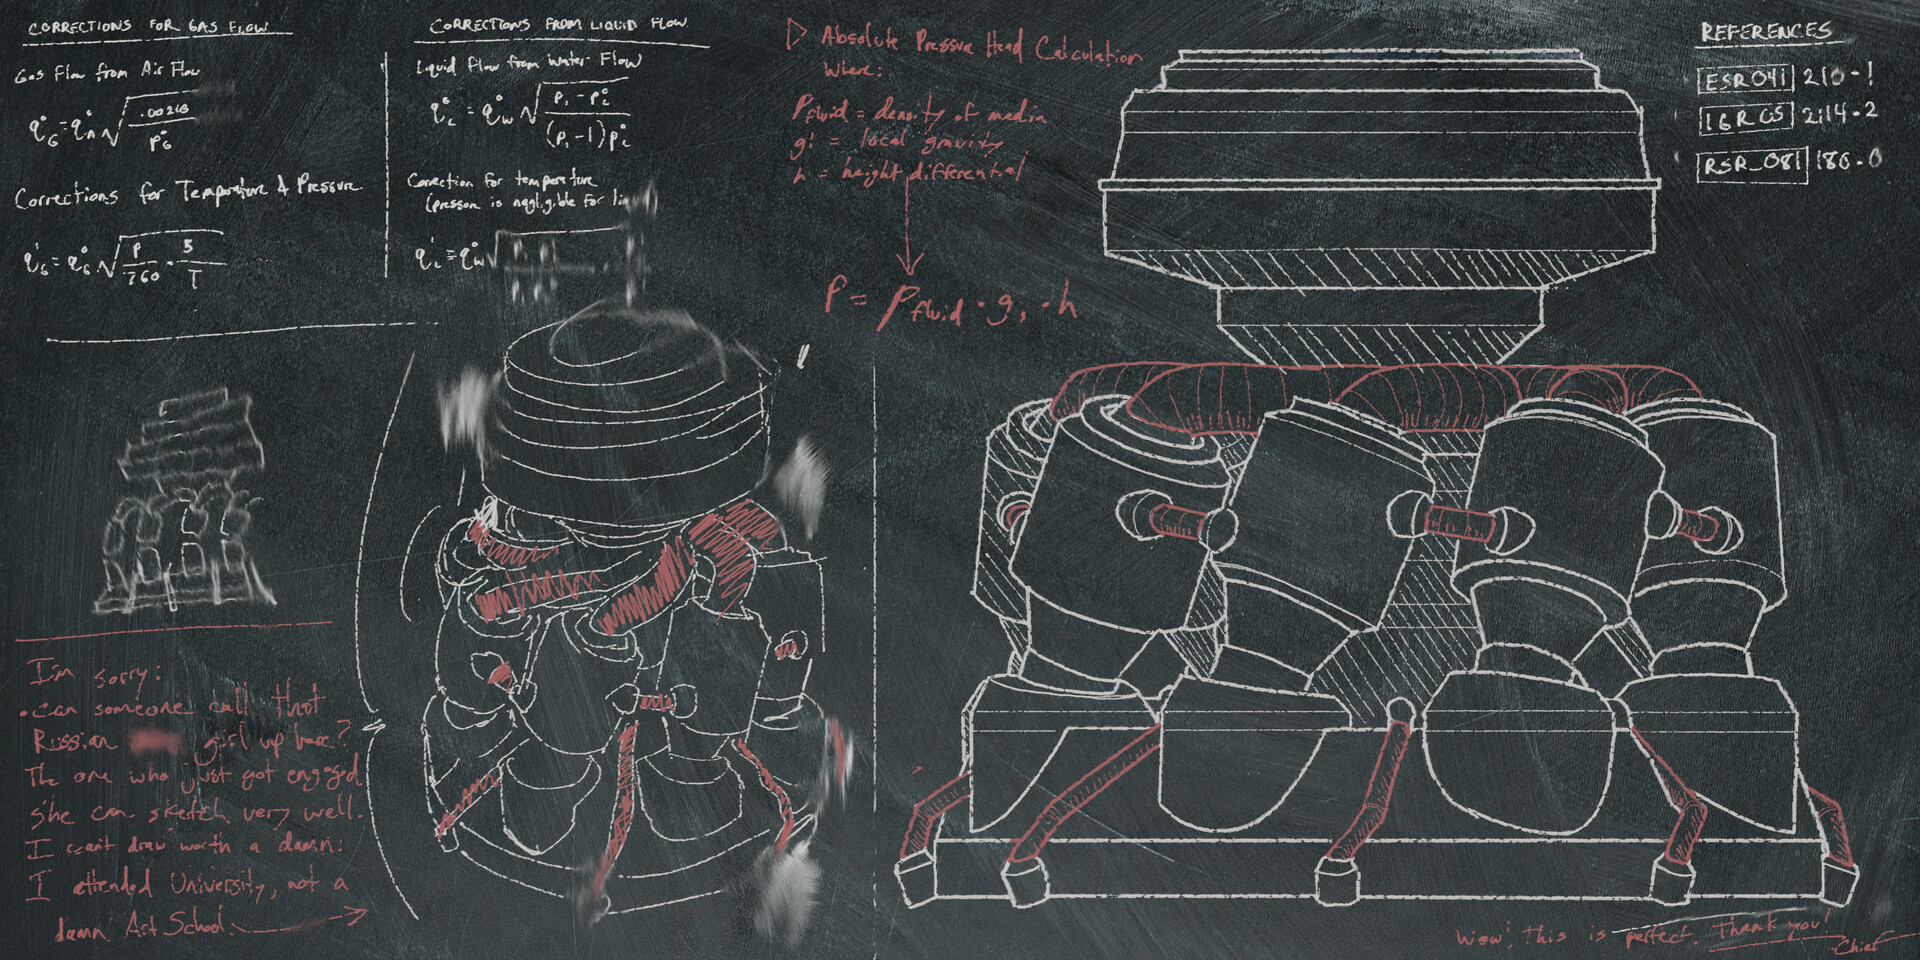 CORRECTIONS FOR GAS FLOW
Gas Flow from Air Flow
q°G = q°A √ .00216 / P°G
Corrections for Temperature & Pressure
q'G = q°G √ P / 760 · 5 / T
CORRECTIONS FROM LIQUID FLOW
Liquid Flow from Water Flow
q°L = q°W √ P, - P°L / (P, -1) P°L
Correction for temperature
(pressure is negligible for
q'L = q°W √
Absolute Pressure Head Calculation
Where:
Pfluid = density of media
g! = local gravity
h = height differential
P = Pfluid · g, · h
REFERENCES
ESR041 210-1
16R05 2114-2
RSR_081 180-0
I'm sorry:
• can someone call that
Russian girl up here?
The one who just got engaged
she can sketch very well.
I can't draw worth a damn.
I attended University, not a
damn Art School.
Wow! this is perfect. Thank you!
-Chief